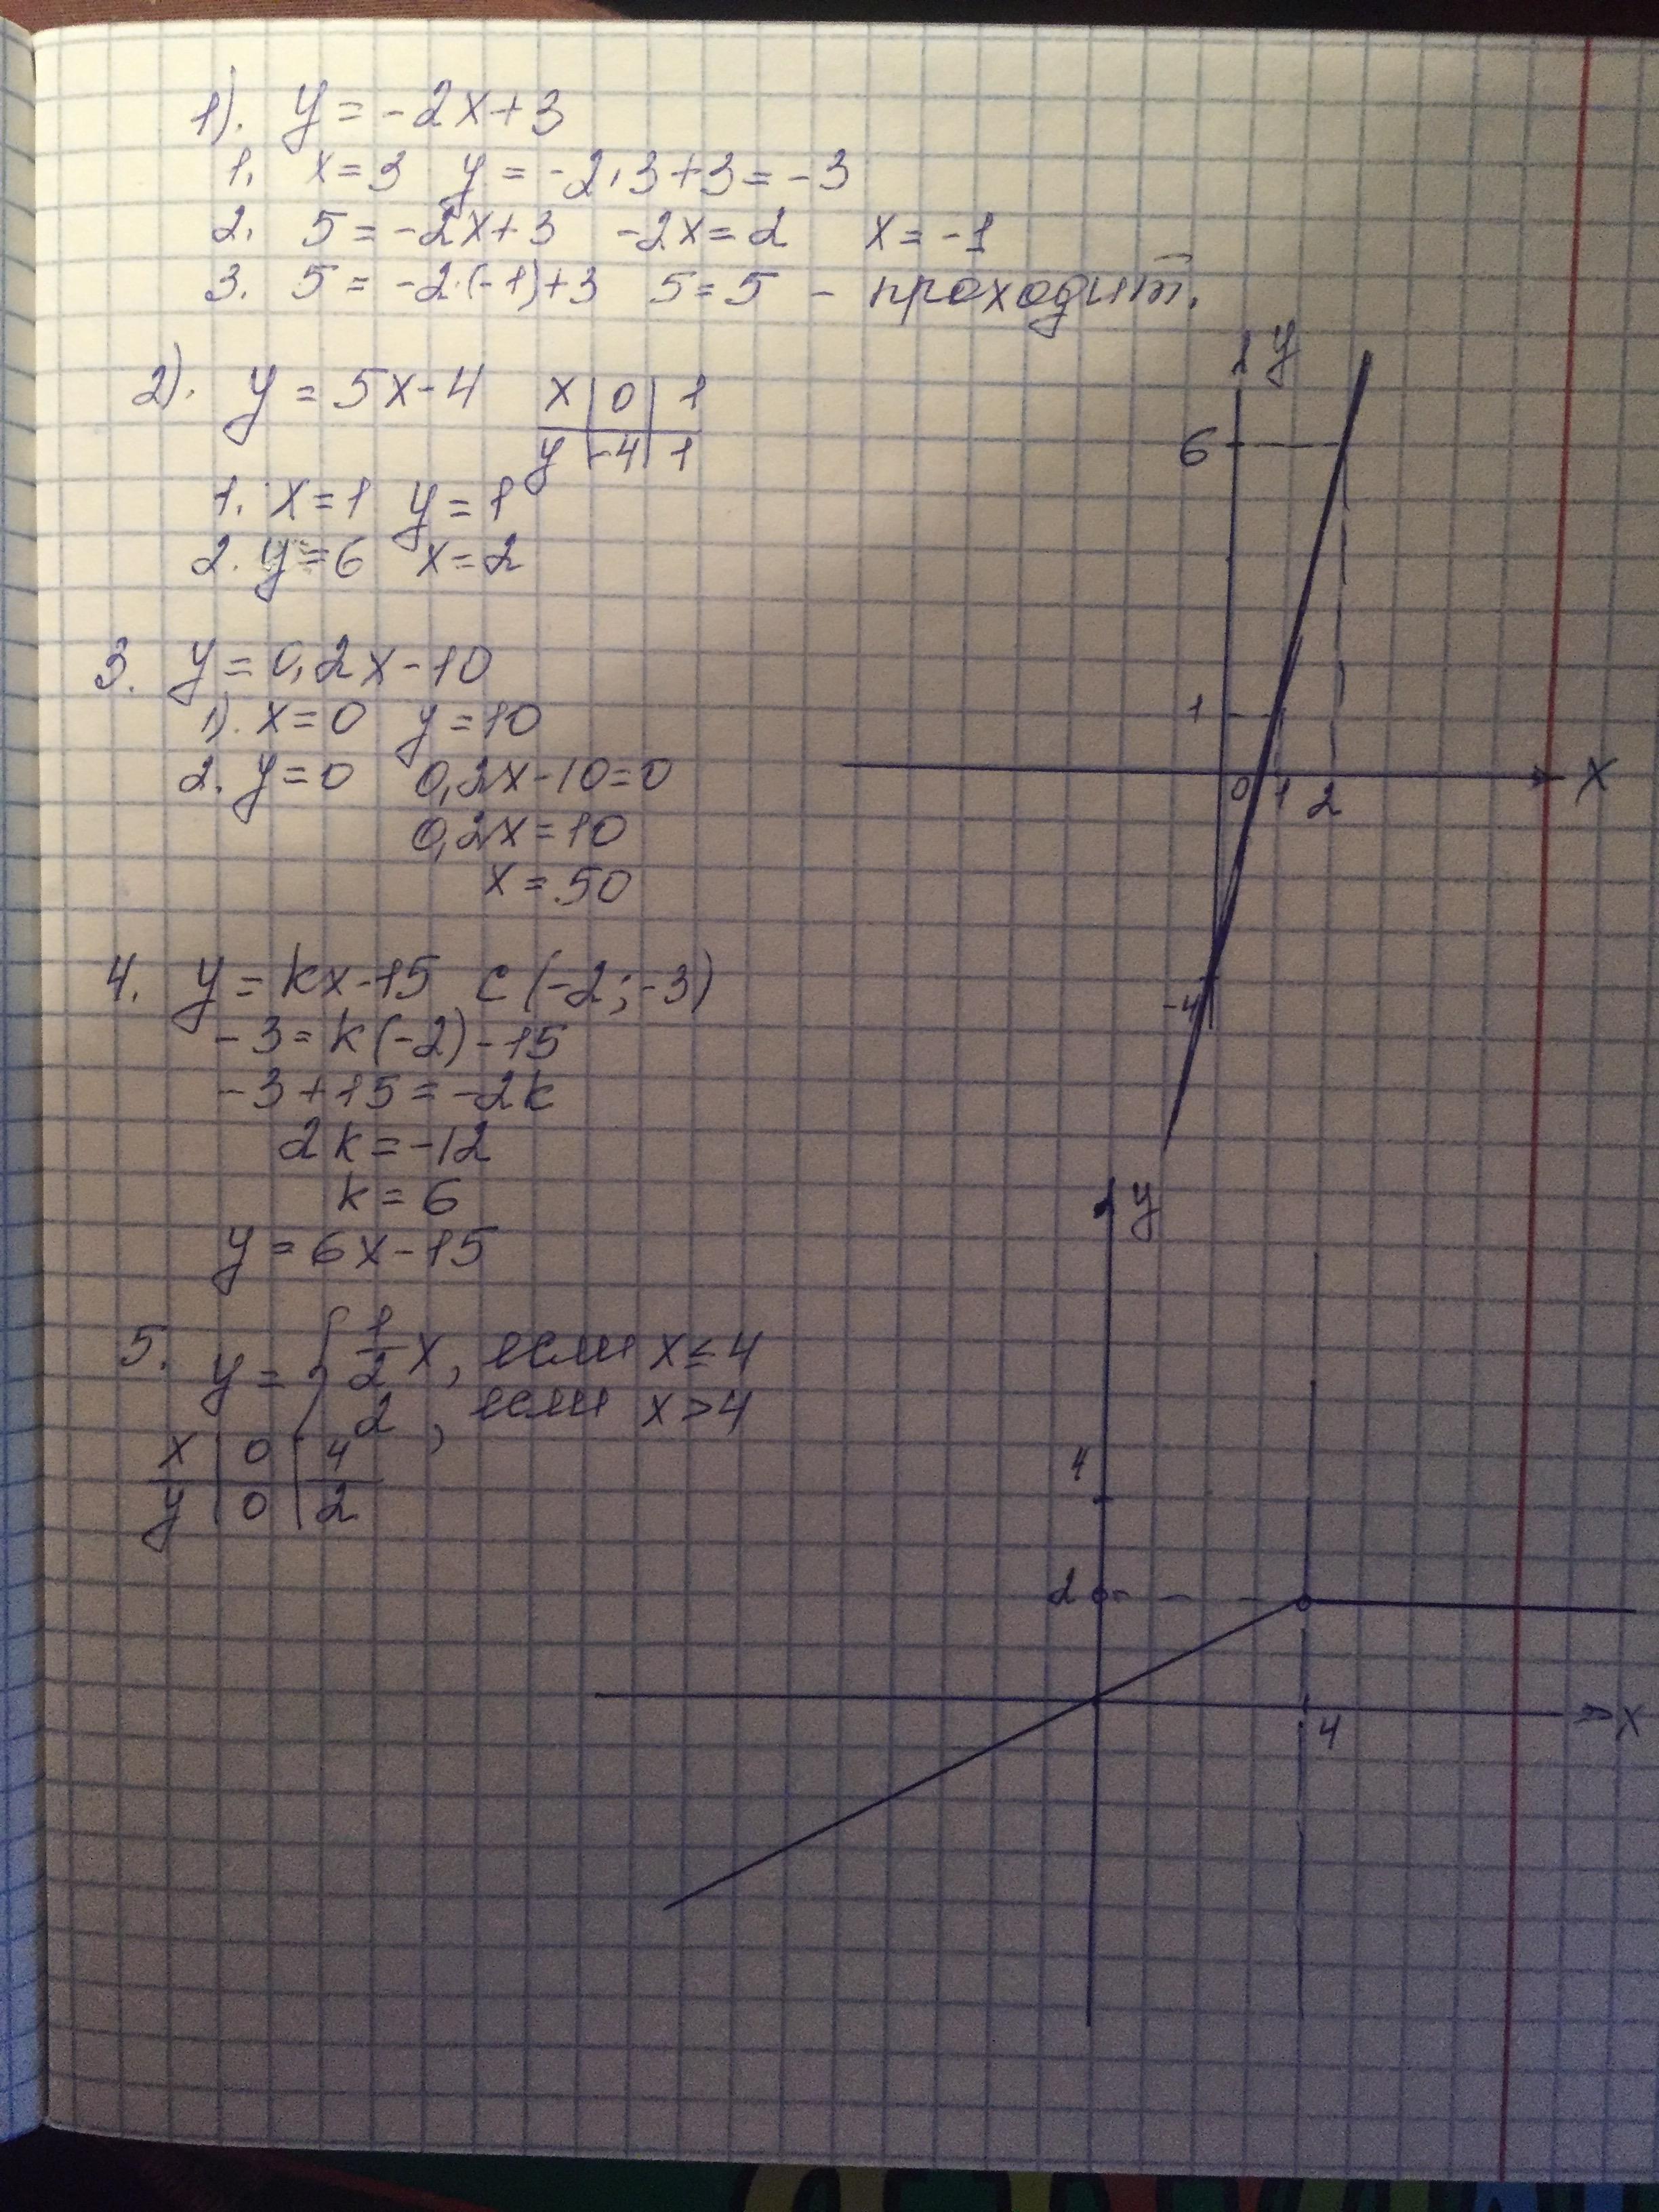 1). y = -2x+3
1. x=3 y = -2·3+3=-3
2. 5=-2x+3 -2x=2 x=-1
3. 5=-2·(-1)+3 5=5 - проходит.
2). y = 5x-4
x | 0 | 1
y | -4 | 1
1. x=1 y=1
2. y=6 x=2
y
6
1
0 1 2
x
-4
3. y=0,2x-10
1). x=0 y=10
2. y=0 0,2x-10=0
0,2x=10
x=50
4. y=kx-15 с(-2;-3)
-3=k(-2)-15
-3+15=-2k
2k=-12
k=6
y=6x-15
5. y={ 1/2 x, если x≤4
2, если x>4
x | 0 | 4
y | 0 | 2
y
4
2
4
x